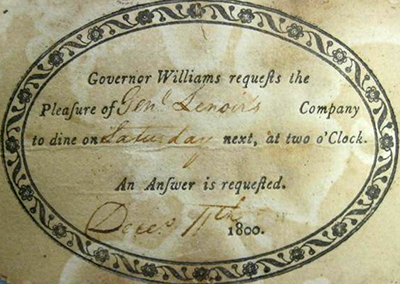 Governor Williams requeſts the
Pleaſure of Genl. Lenoir's Company
to dine on Saturday next, at two o'Clock.
An Anſwer is requeſted.
Decr. 11th 1800.